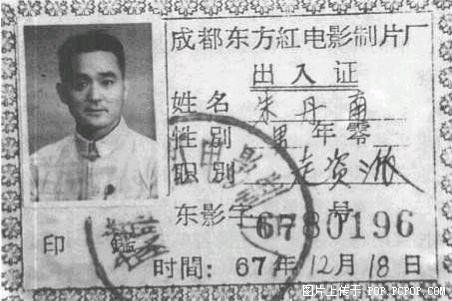 成都东方红电影制片厂
出入证
姓名 朱丹南
性别 男 年零
职别 走资派
东影字 6780196 号
印鑑
时间：67年12月18日
图片上传于 POP.PCPOP.COM